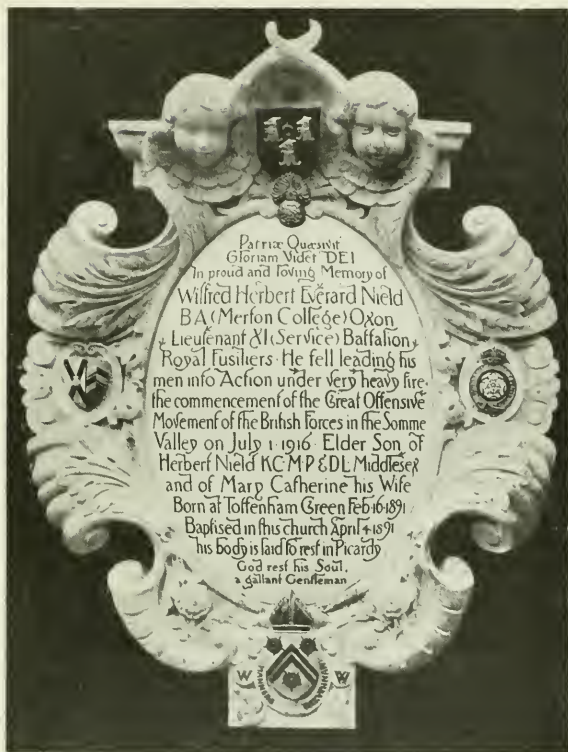 Patriæ Quæsivit
Gloriam Videt DEI
In proud and loving Memory of
Wilfred Herbert Everard Nield
BA (Merton College) Oxon
Lieutenant XI (Service) Battalion
Royal Fusiliers · He fell leading his
men into Action under very heavy fire ·
the commencement of the Great Offensive
Movement of the British Forces in the Somme
Valley on July 1 · 1916 · Elder Son of
Herbert Nield KC · MP & DL Middlesex
and of Mary Catherine his Wife
Born at Tottenham Green Feb 16 · 1891 ·
Baptised in this church April 4 · 1891
his body is laid to rest in Picardy
God rest his Soul,
a gallant Gentleman
W W
MANNERS MAKYTH MAN